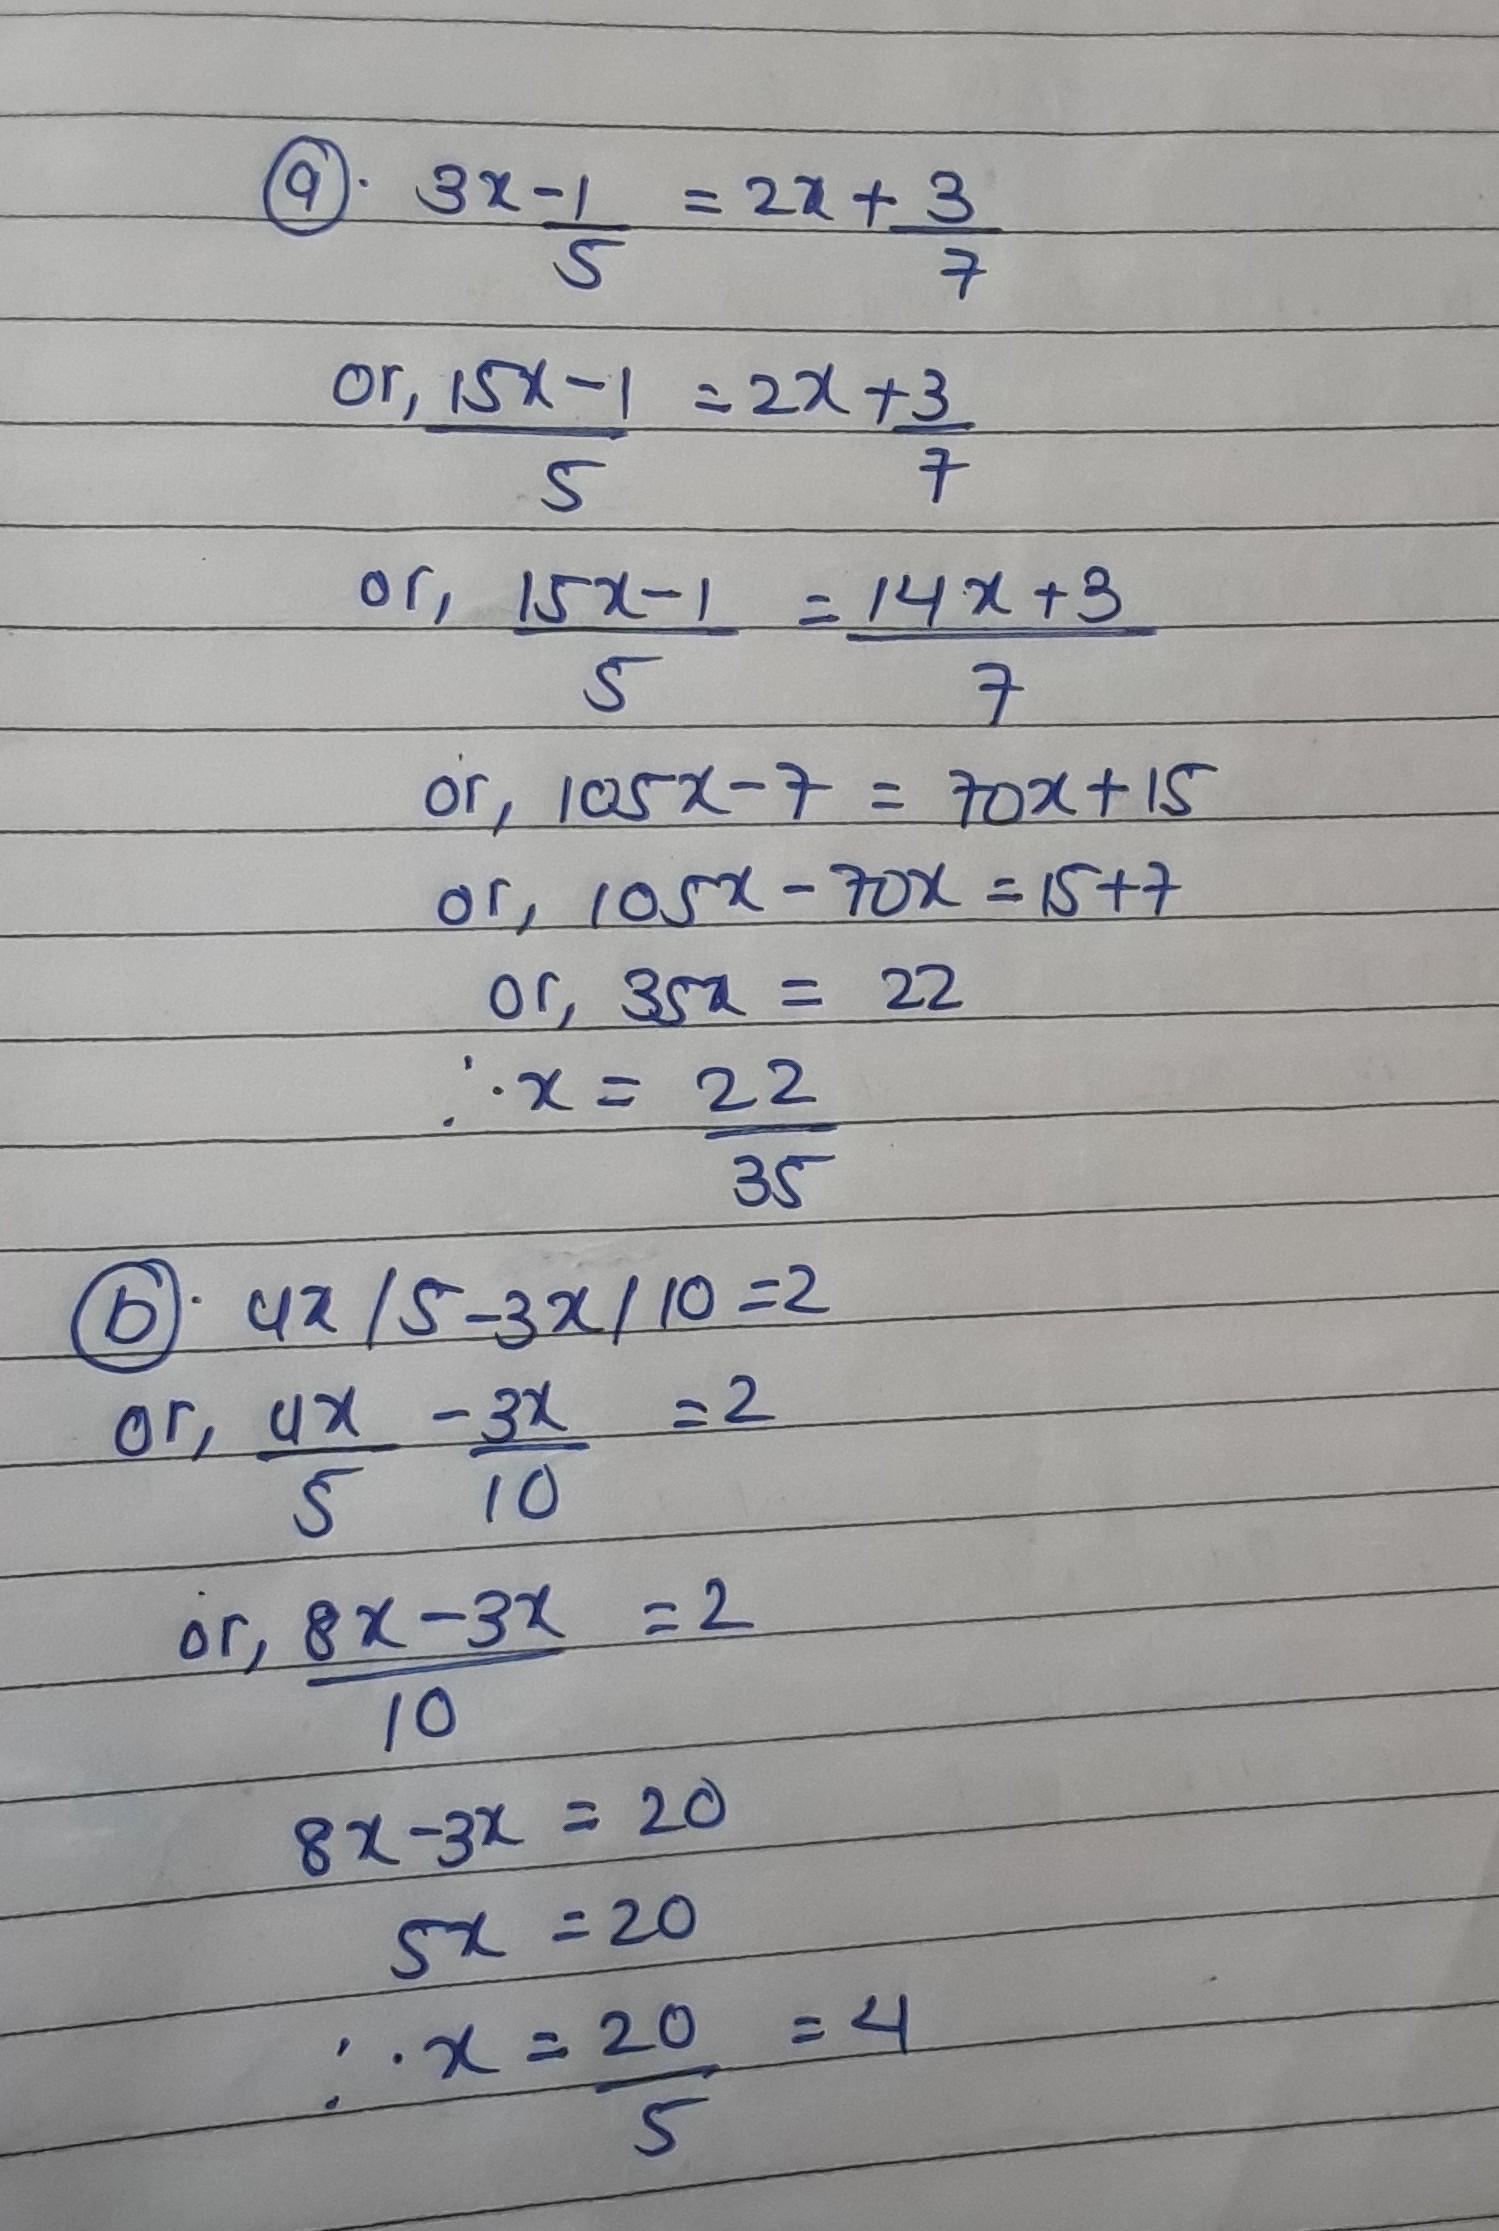 (a). 3x - 1/5 = 2x + 3/7
or, (15x - 1)/5 = 2x + 3/7
or, (15x - 1)/5 = (14x + 3)/7
or, 105x - 7 = 70x + 15
or, 105x - 70x = 15 + 7
or, 35x = 22
∴ x = 22/35
(b). 4x/5 - 3x/10 = 2
or, 4x/5 - 3x/10 = 2
or, (8x - 3x)/10 = 2
8x - 3x = 20
5x = 20
∴ x = 20/5 = 4